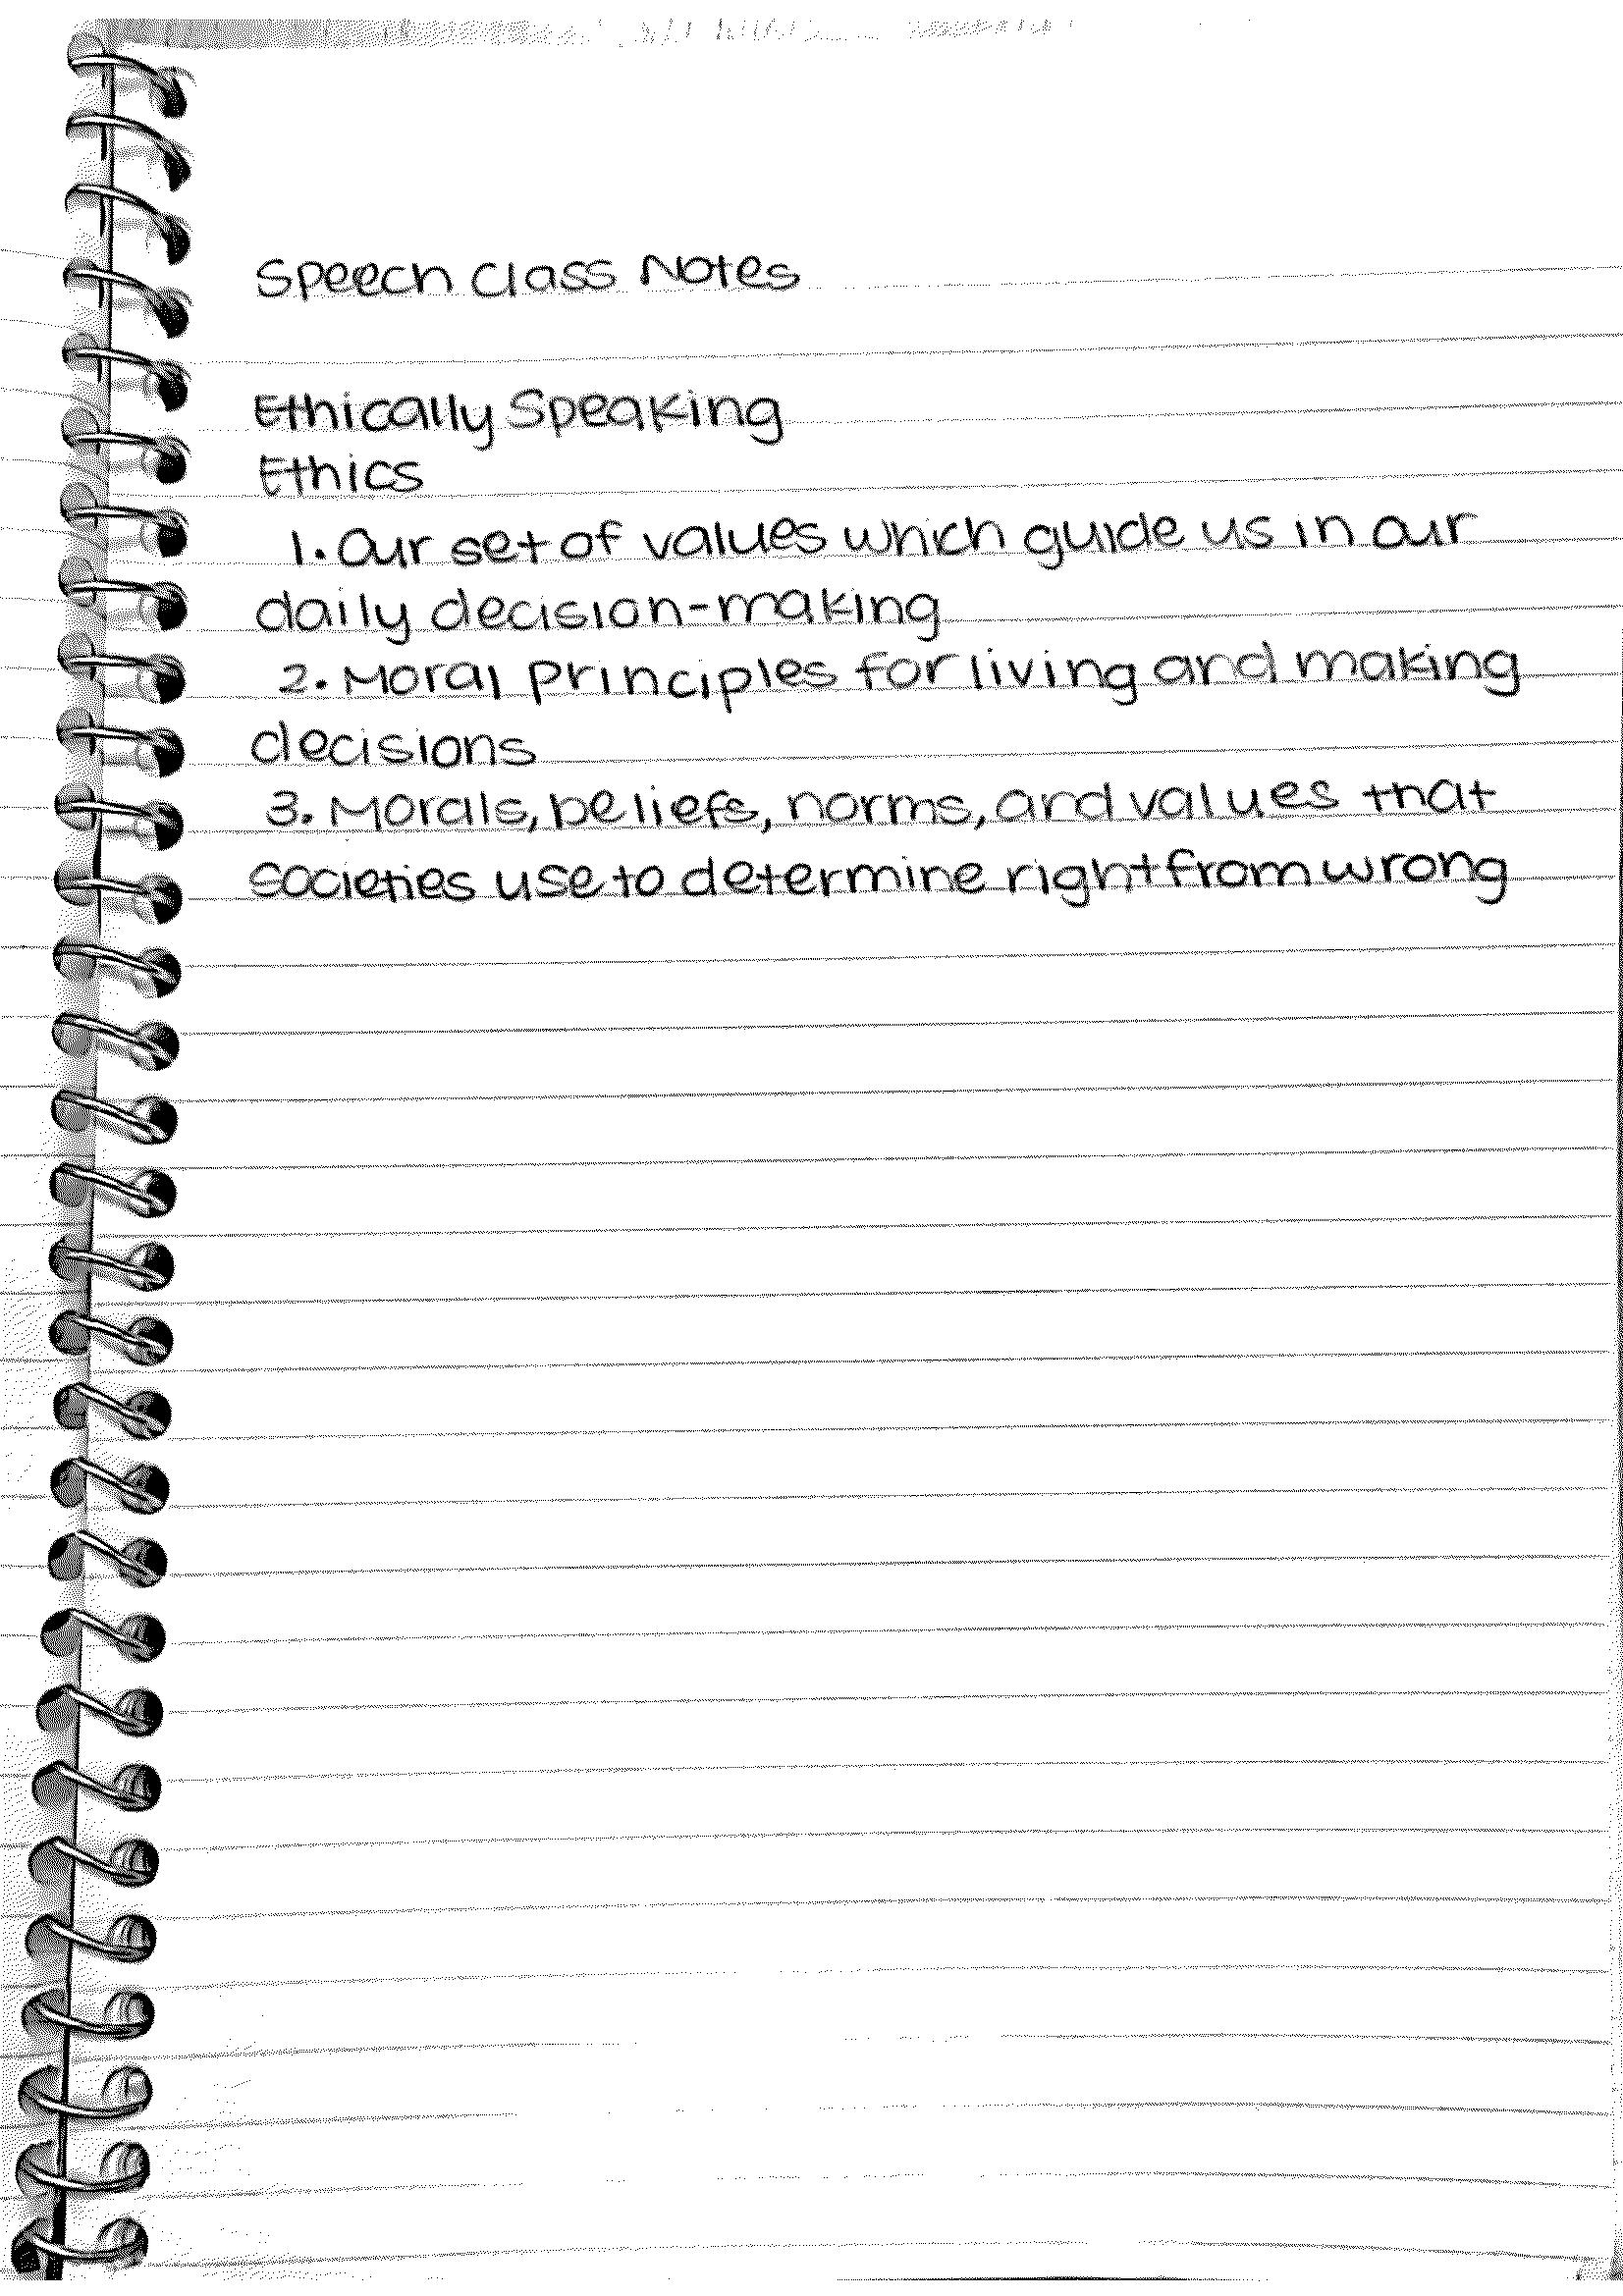 Speech Class Notes
Ethically Speaking
Ethics
1. Our set of values which guide us in our
daily decision-making
2. Moral principles for living and making
decisions
3. Morals, beliefs, norms, and values that
societies use to determine right from wrong